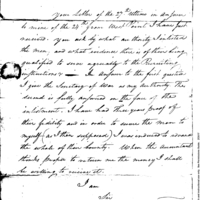 Your Letter of the 27th ultimo in answer
to mine of the 24th from West Point I have just
received. You ask by what authority I enlisted
the men, and what evidence there is of their being
qualified to serve agreeably to the Recruiting
instructions — In answer to the first question
I give the Secretary of War as my authority the
second is fully answered on the face of the
enlistment. I have had three years proof of
their fidelity and in order to secure the men to
myself as I then supposed I was induced to advance
the whole of their bounty. When the accountant
thinks proper to return me the money I shall
be willing to receive it.
I am
Sir